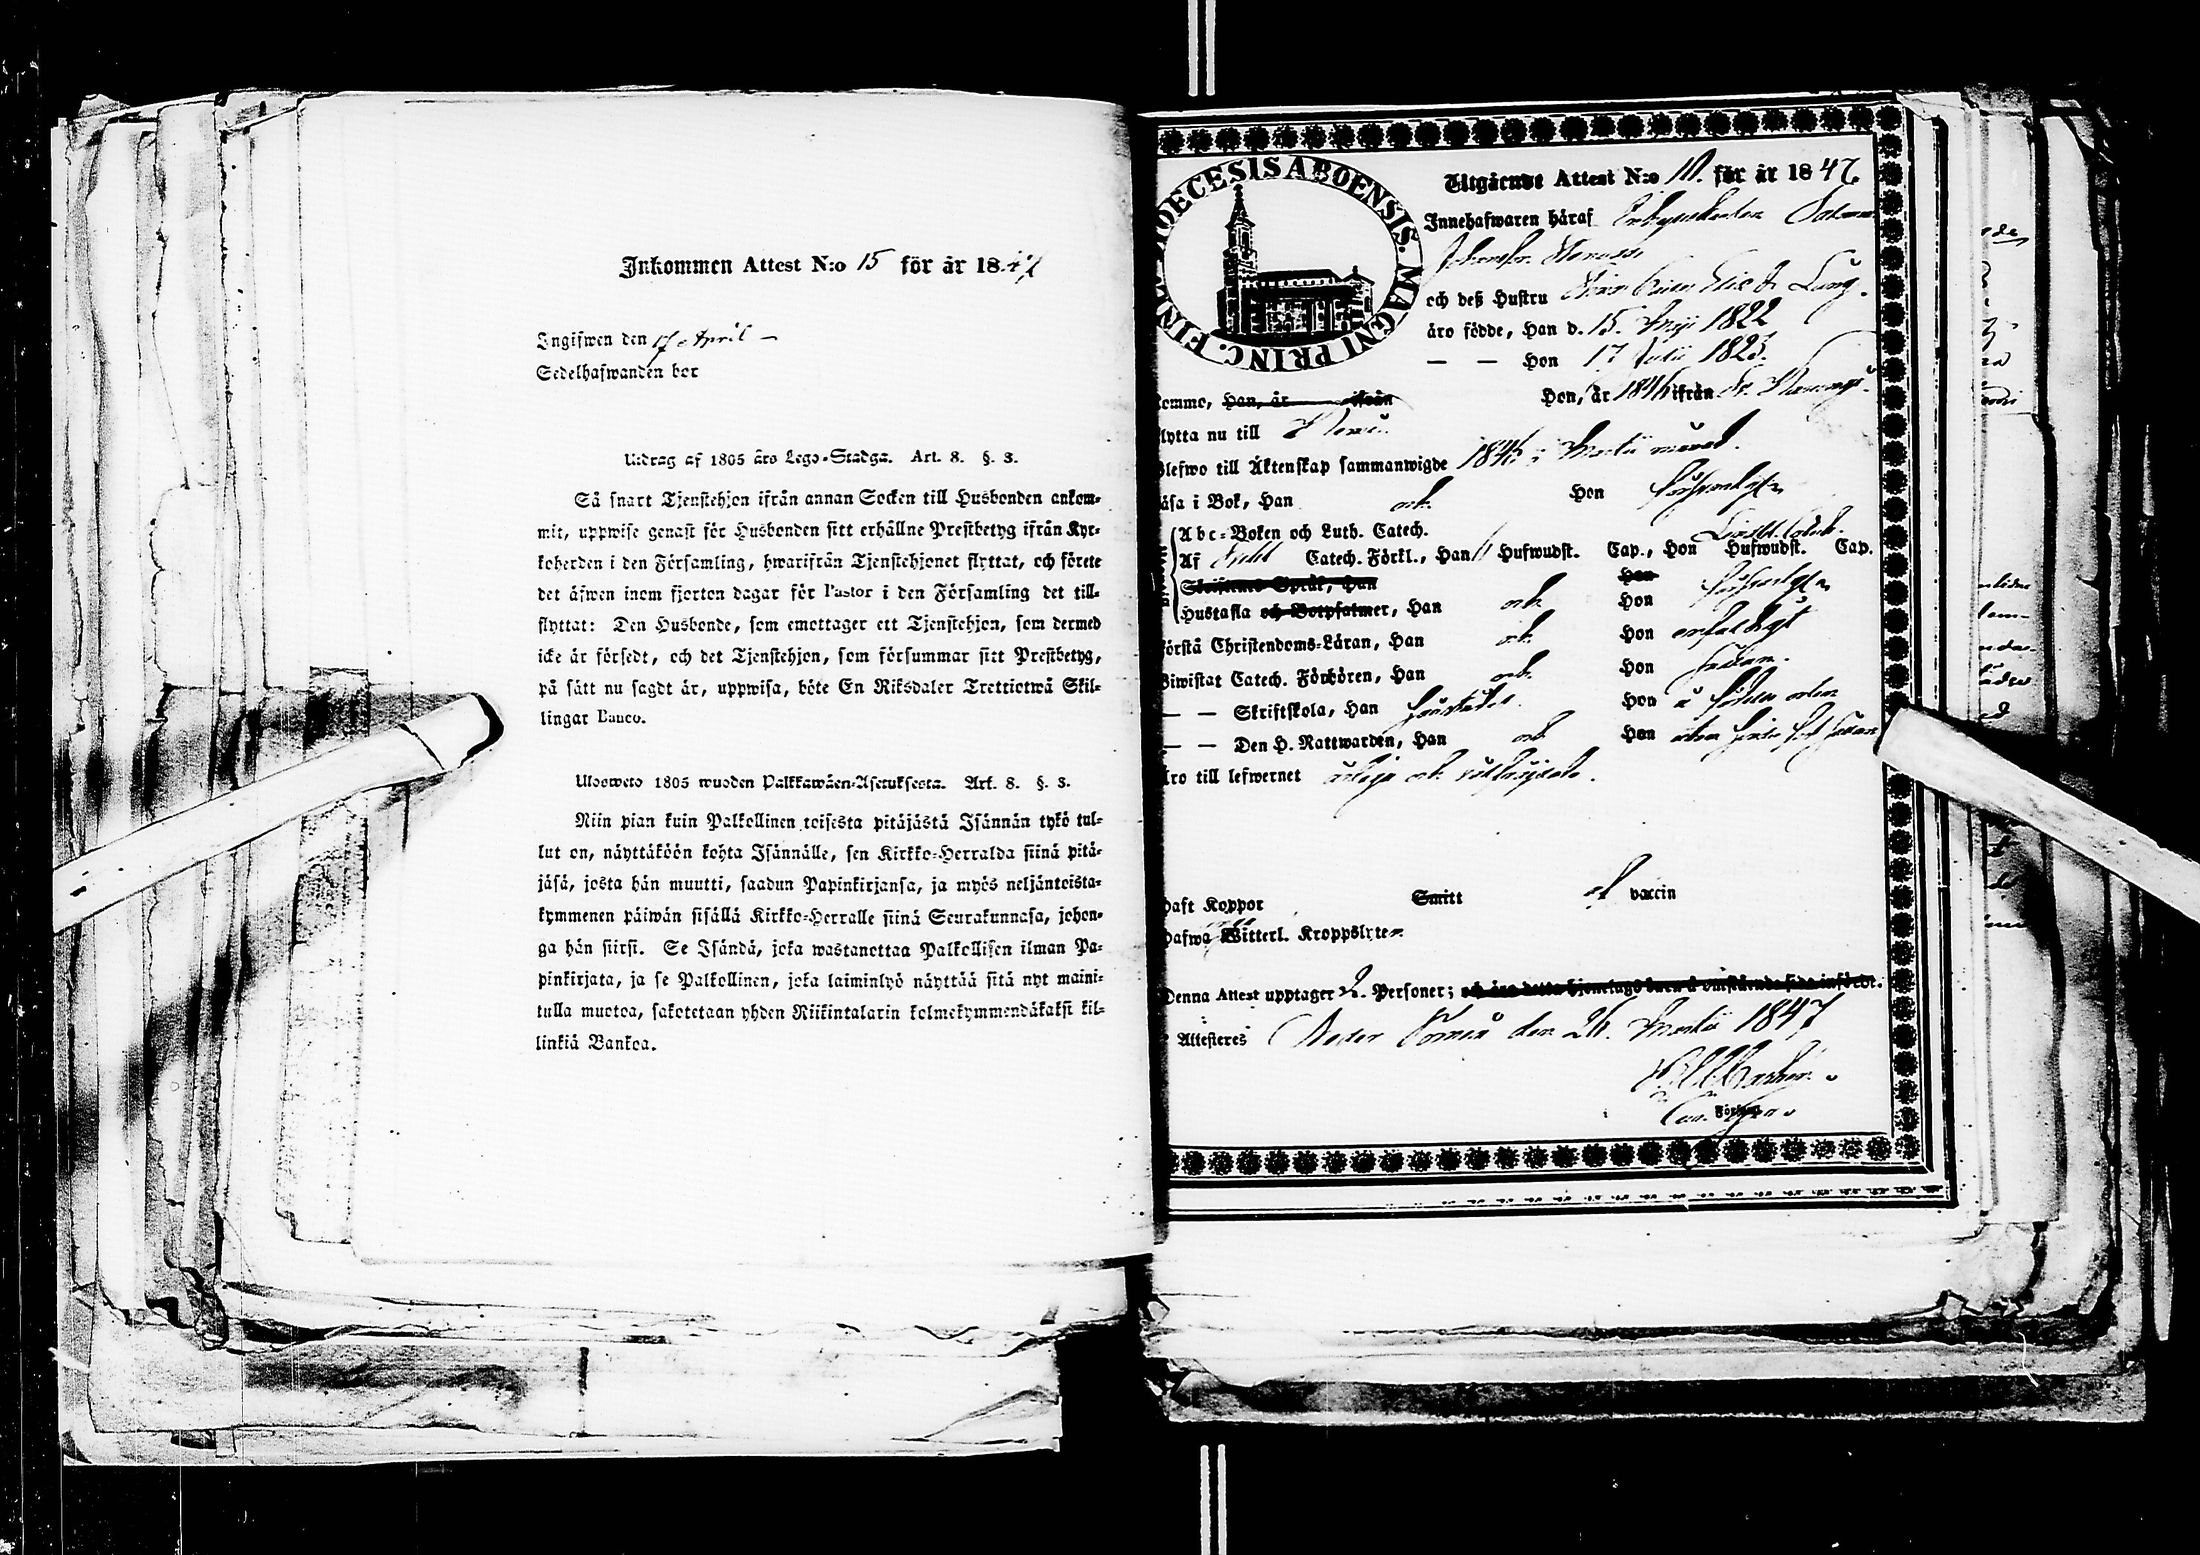 Inkommen Attest N:o 15 för år 1847
Ingifwen den 17 April —
Sedelhafwanden bor
Utdrag af 1805 års Lego-Stadga. Art. 8. §. 3.
Så snart Tjenstehjon ifrån annan Socken till Husbonden ankom-
mit, uppwise genast för Husbonden sitt erhållne Prestbetyg ifrån Kyr-
koherden i den Församling, hwarifrån Tjenstehjonet flyttat, och förete
det äfwen inom fjorton dagar för Pastor i den Församling det till-
flyttat: Den Husbonde, som emottager ett Tjenstehjon, som dermed
icke är försedt, och det Tjenstehjon, som försummar sitt Prestbetyg,
på sätt nu sagdt är, uppwisa, böte En Riksdaler Trettiotwå Skil-
lingar Banco.
Ulosweto 1805 wuoden Palkkawäen-Asetuksesta. Art. 8. §. 3.
Niin pian kuin Palkollinen toisesta pitäjästä Isännän tykö tul-
lut on, näyttäköön kohta Isännälle, sen Kirkko-Herralda siinä pitä-
jäsä, josta hän muutti, saadun Papinkirjansa, ja myös neljäntoista-
kymmenen päiwän sisällä Kirkko-Herralle siinä Seurakunnasa, johon-
ga hän siirsi. Se Isändä, joka wastanottaa Palkollisen ilman Pa-
pinkirjata, ja se Palkollinen, joka laiminlyö näyttää sitä nyt maini-
tulla muotoa, sakotetaan yhden Riikintalarin kolmekymmendäkaksi kil-
linkiä Bankoa.
DIOECESIS ABOENSIS. MAGNI PRINC. FINL
Utgående Attest N:o 10. för år 1847.
Innehafwaren häraf
Johansson
och deß Hustru
äro födde, Han d. 15. Maji 1822
— — Hon 17 Julii 1823.
komme, Han, år ifrån Hon, år 1846 ifrån
flytta nu till
Blefwo till Äktenskap sammanwigde 1846 i Martii månad.
läsa i Bok, Han och Hon försvarligen
Abc-Boken och Luth. Catech.
Af Catech. Förkl., Han Hufwudst. Cap., Hon Hufwudst. Cap.
Skriftenes Språk, Han Hon
Hustafla och Botpsalmer, Han och Hon försvarligen
förstå Christendoms-Läran, Han och Hon enfaldigt
Biwistat Catech. Förhören, Han och Hon sedan.
— — Skriftskola, Han Hon
— — Den H. Nattwarden, Han och Hon
Äro till lefwernet ärliga och
haft Koppor Smitt vaccin
hafwa Witterl. Kroppslyten
Denna Attest upptager 2. Personer; och äro detta hjonelags barn å omstående sida införde.
Attesteres Neder Torneå den 26. Martii 1847